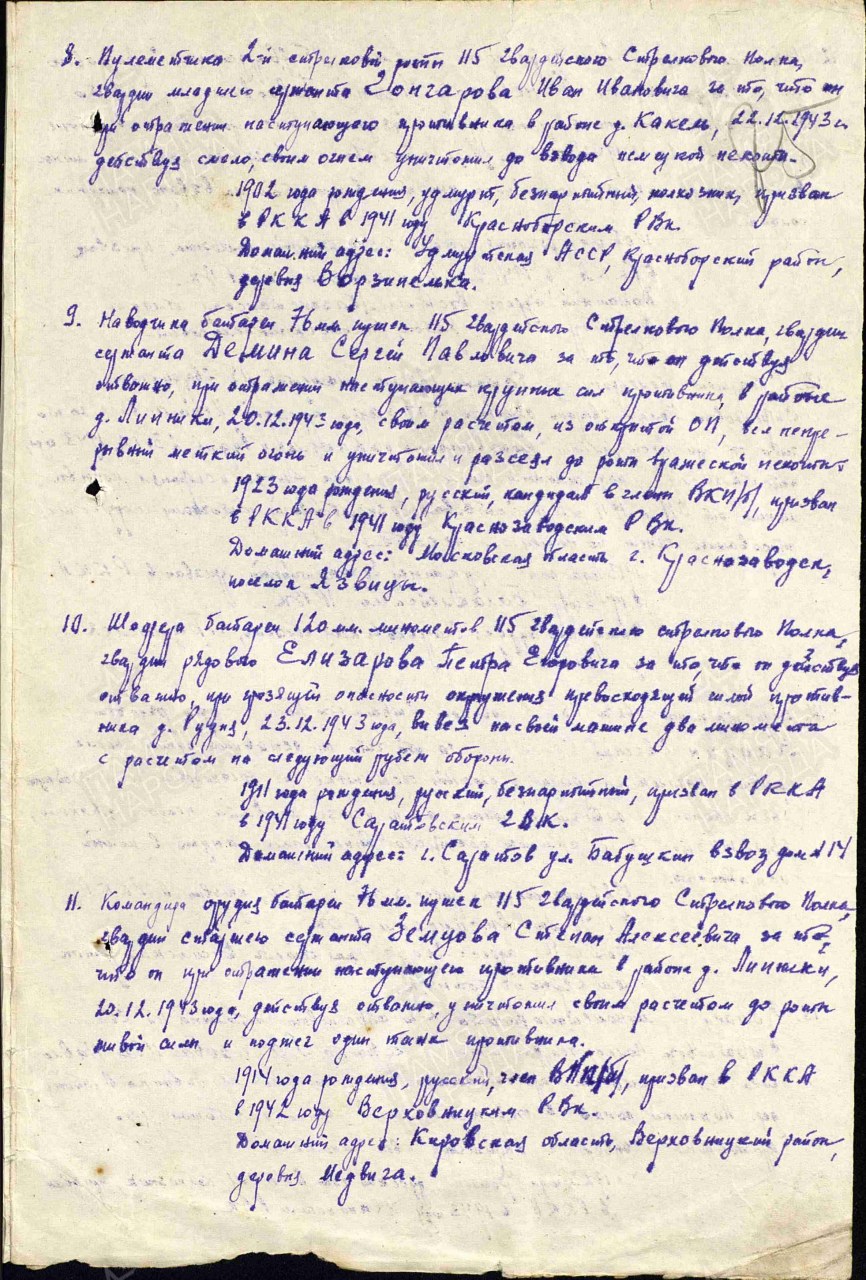 8. Пулеметчика 2-й стрелковой роты 115 гвардейского Стрелкового Полка,
гвардии младшего сержанта Гончарова Иван Ивановича за то, что он
при отражении наступающего противника в районе д. Какель, 22.12.1943 г.
действуя смело, своим огнем уничтожил до взвода немецкой пехоты.
1902 года рождения, удмурт, безпартийный, колхозник, призван
в РККА в 1941 году Красноборским РВк.
Домашний адрес: Удмуртская АССР, Красноборский район,
деревня Ворзинелька.
9. Наводчика батареи 76 мм. пушек 115 гвардейского Стрелкового Полка, гвардии
сержанта Демина Сергей Павловича за то, что он действуя
отважно, при отражении наступающих крупных сил противника, в районе
д. Липняки, 20.12.1943 года, своим расчетом, из открытой ОП, вел непре-
рывный меткий огонь и уничтожил и рассеял до роты вражеской пехоты.
1923 года рождения, русский, кандидат в члены ВКП/б/, призван
в РККА в 1941 году Краснозаводским РВк.
Домашний адрес: Московская область г. Краснозаводск,
поселок Язвицы.
10. Шофера батареи 120 мм. минометов 115 гвардейского стрелкового Полка,
гвардии рядового Елизарова Петра Егоровича за то, что он действуя
отважно, при грозящей опасности окружения превосходящей силой против-
ника д. Рудня, 23.12.1943 года, вывез на своей машине два миномета
с расчетом на следующий рубеж обороны.
1911 года рождения, русский, безпартийный, призван в РККА
в 1941 году Саратовским ГВк.
Домашний адрес: г. Саратов ул. Бабушкин взвоз дом № 14
11. Командира орудия батареи 76 мм. пушек 115 гвардейского Стрелкового Полка,
гвардии старшего сержанта Земцова Степан Алексеевича за то,
что он при отражении наступающего противника в районе д. Липняки,
20.12.1943 года, действуя отважно, уничтожил своим расчетом до роты
живой силы и поджег один танк противника.
1914 года рождения, русский, член ВКП/б/, призван в РККА
в 1942 году Верховницким РВк.
Домашний адрес: Кировская область, Верховницкий район,
деревня Медвига.